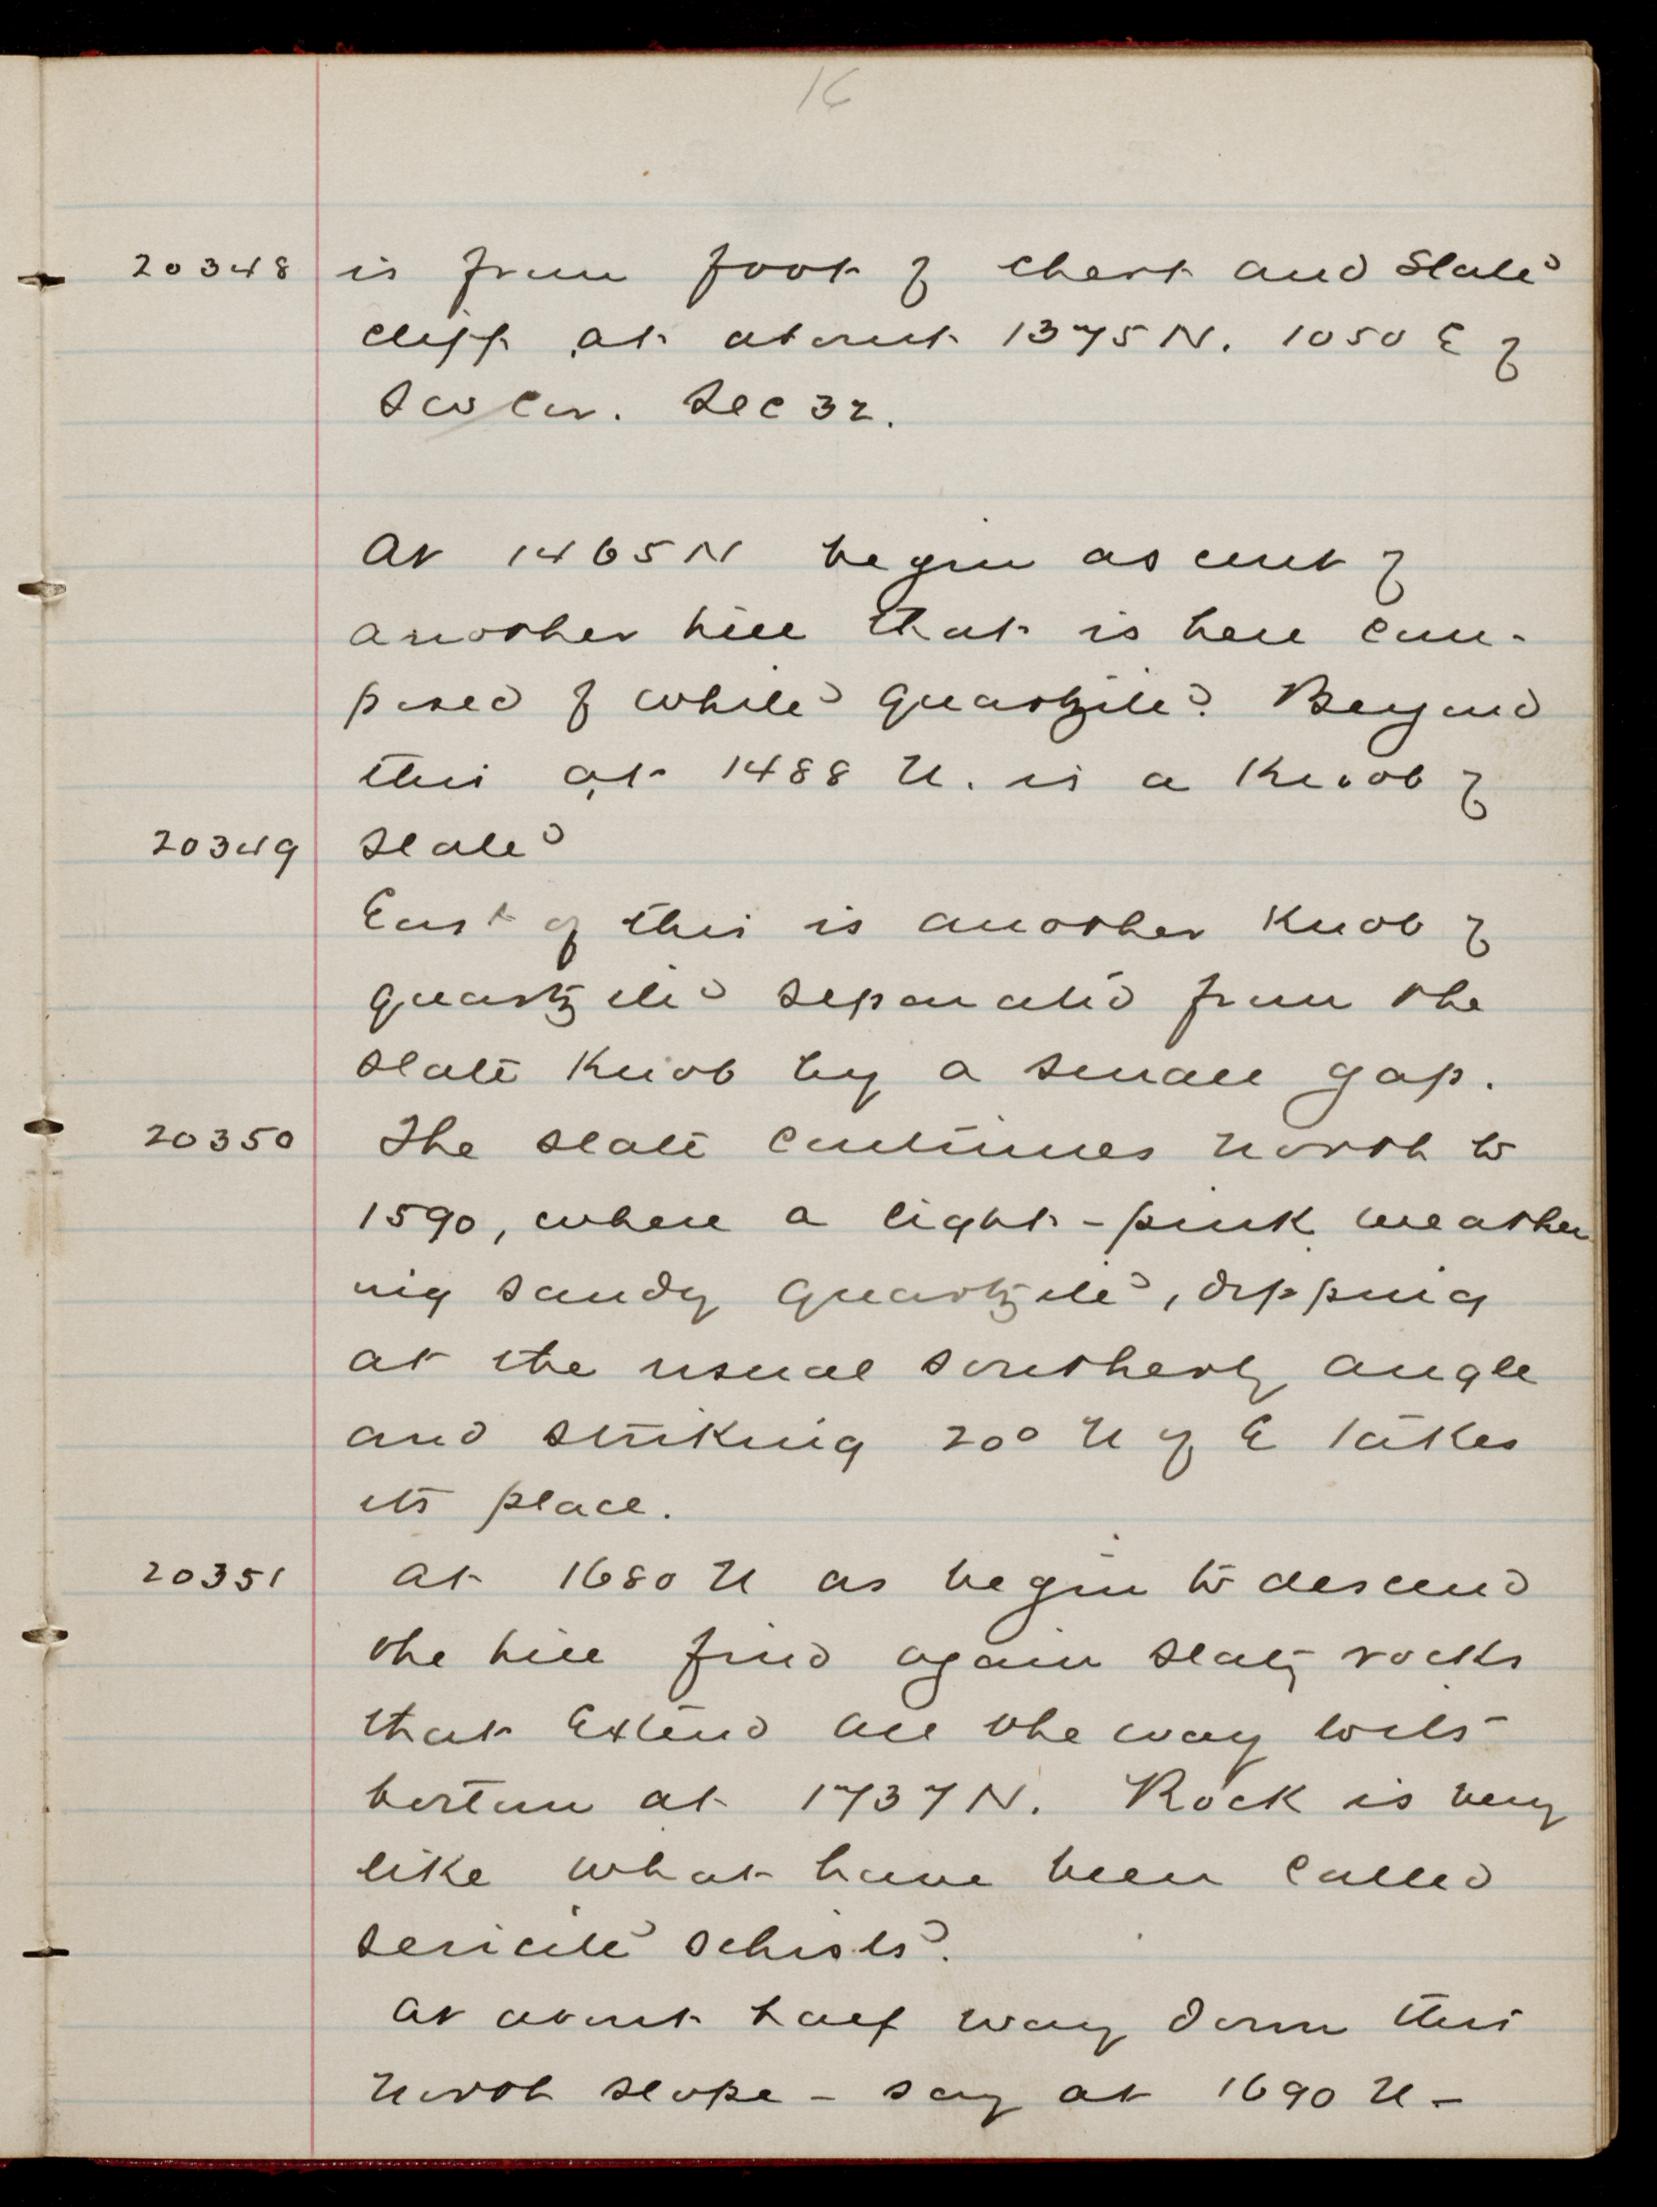 16
20348 is from foot of chert and slate
cliff at about 1375 N. 1050 E of
SW Cor. Sec 32.
At 1465 N begin ascent of
another hill that is here com-
posed of white quartzite. Beyond
this at 1488 N. is a Knob of
20349 slate
East of this is another Knob of
quartzite separated from the
slate Knob by a small gap.
20350 The slate continues north to
1590, where a light-pink weather
ing sandy quartzite, dipping
at the usual southerly angle
and striking 20° N of E takes
its place.
20351 At 1680 N as begin to descend
the hill find again slaty rocks
that Extend all the way to its
bottom at 1737 N. Rock is very
like what have been called
sericite schists.
At about half way down this
North slope - say at 1690 N -